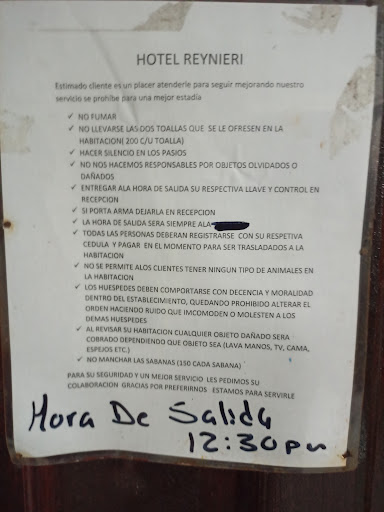 HOTEL REYNIERI
Estimado cliente es un placer atenderle para seguir mejorando nuestro
servicio se prohíbe para una mejor estadía
✓ NO FUMAR
✓ NO LLEVARSE LAS DOS TOALLAS QUE SE LE OFRESEN EN LA
HABITACION( 200 C/U TOALLA)
✓ HACER SILENCIO EN LOS PASIOS
✓ NO NOS HACEMOS RESPONSABLES POR OBJETOS OLVIDADOS O
DAÑADOS
✓ ENTREGAR ALA HORA DE SALIDA SU RESPECTIVA LLAVE Y CONTROL EN
RECEPCION
✓ SI PORTA ARMA DEJARLA EN RECEPCION
✓ LA HORA DE SALIDA SERA SIEMPRE ALA
✓ TODAS LAS PERSONAS DEBERAN REGISTRARSE CON SU RESPETIVA
CEDULA Y PAGAR EN EL MOMENTO PARA SER TRASLADADOS A LA
HABITACION
✓ NO SE PERMITE ALOS CLIENTES TENER NINGUN TIPO DE ANIMALES EN
LA HABITACION
✓ LOS HUESPEDES DEBEN COMPORTARSE CON DECENCIA Y MORALIDAD
DENTRO DEL ESTABLECIMIENTO, QUEDANDO PROHIBIDO ALTERAR EL
ORDEN HACIENDO RUIDO QUE IMCOMODEN O MOLESTEN A LOS
DEMAS HUESPEDES
✓ AL REVISAR SU HABITACION CUALQUIER OBJETO DAÑADO SERA
COBRADO DEPENDIENDO QUE OBJETO SEA (LAVA MANOS, TV, CAMA,
ESPEJOS ETC.)
✓ NO MANCHAR LAS SABANAS (150 CADA SABANA)
PARA SU SEGURIDAD Y UN MEJOR SERVICIO LES PEDIMOS SU
COLABORACION GRACIAS POR PREFERIRNOS ESTAMOS PARA SERVIRLE
Hora De Salida
12:30pm